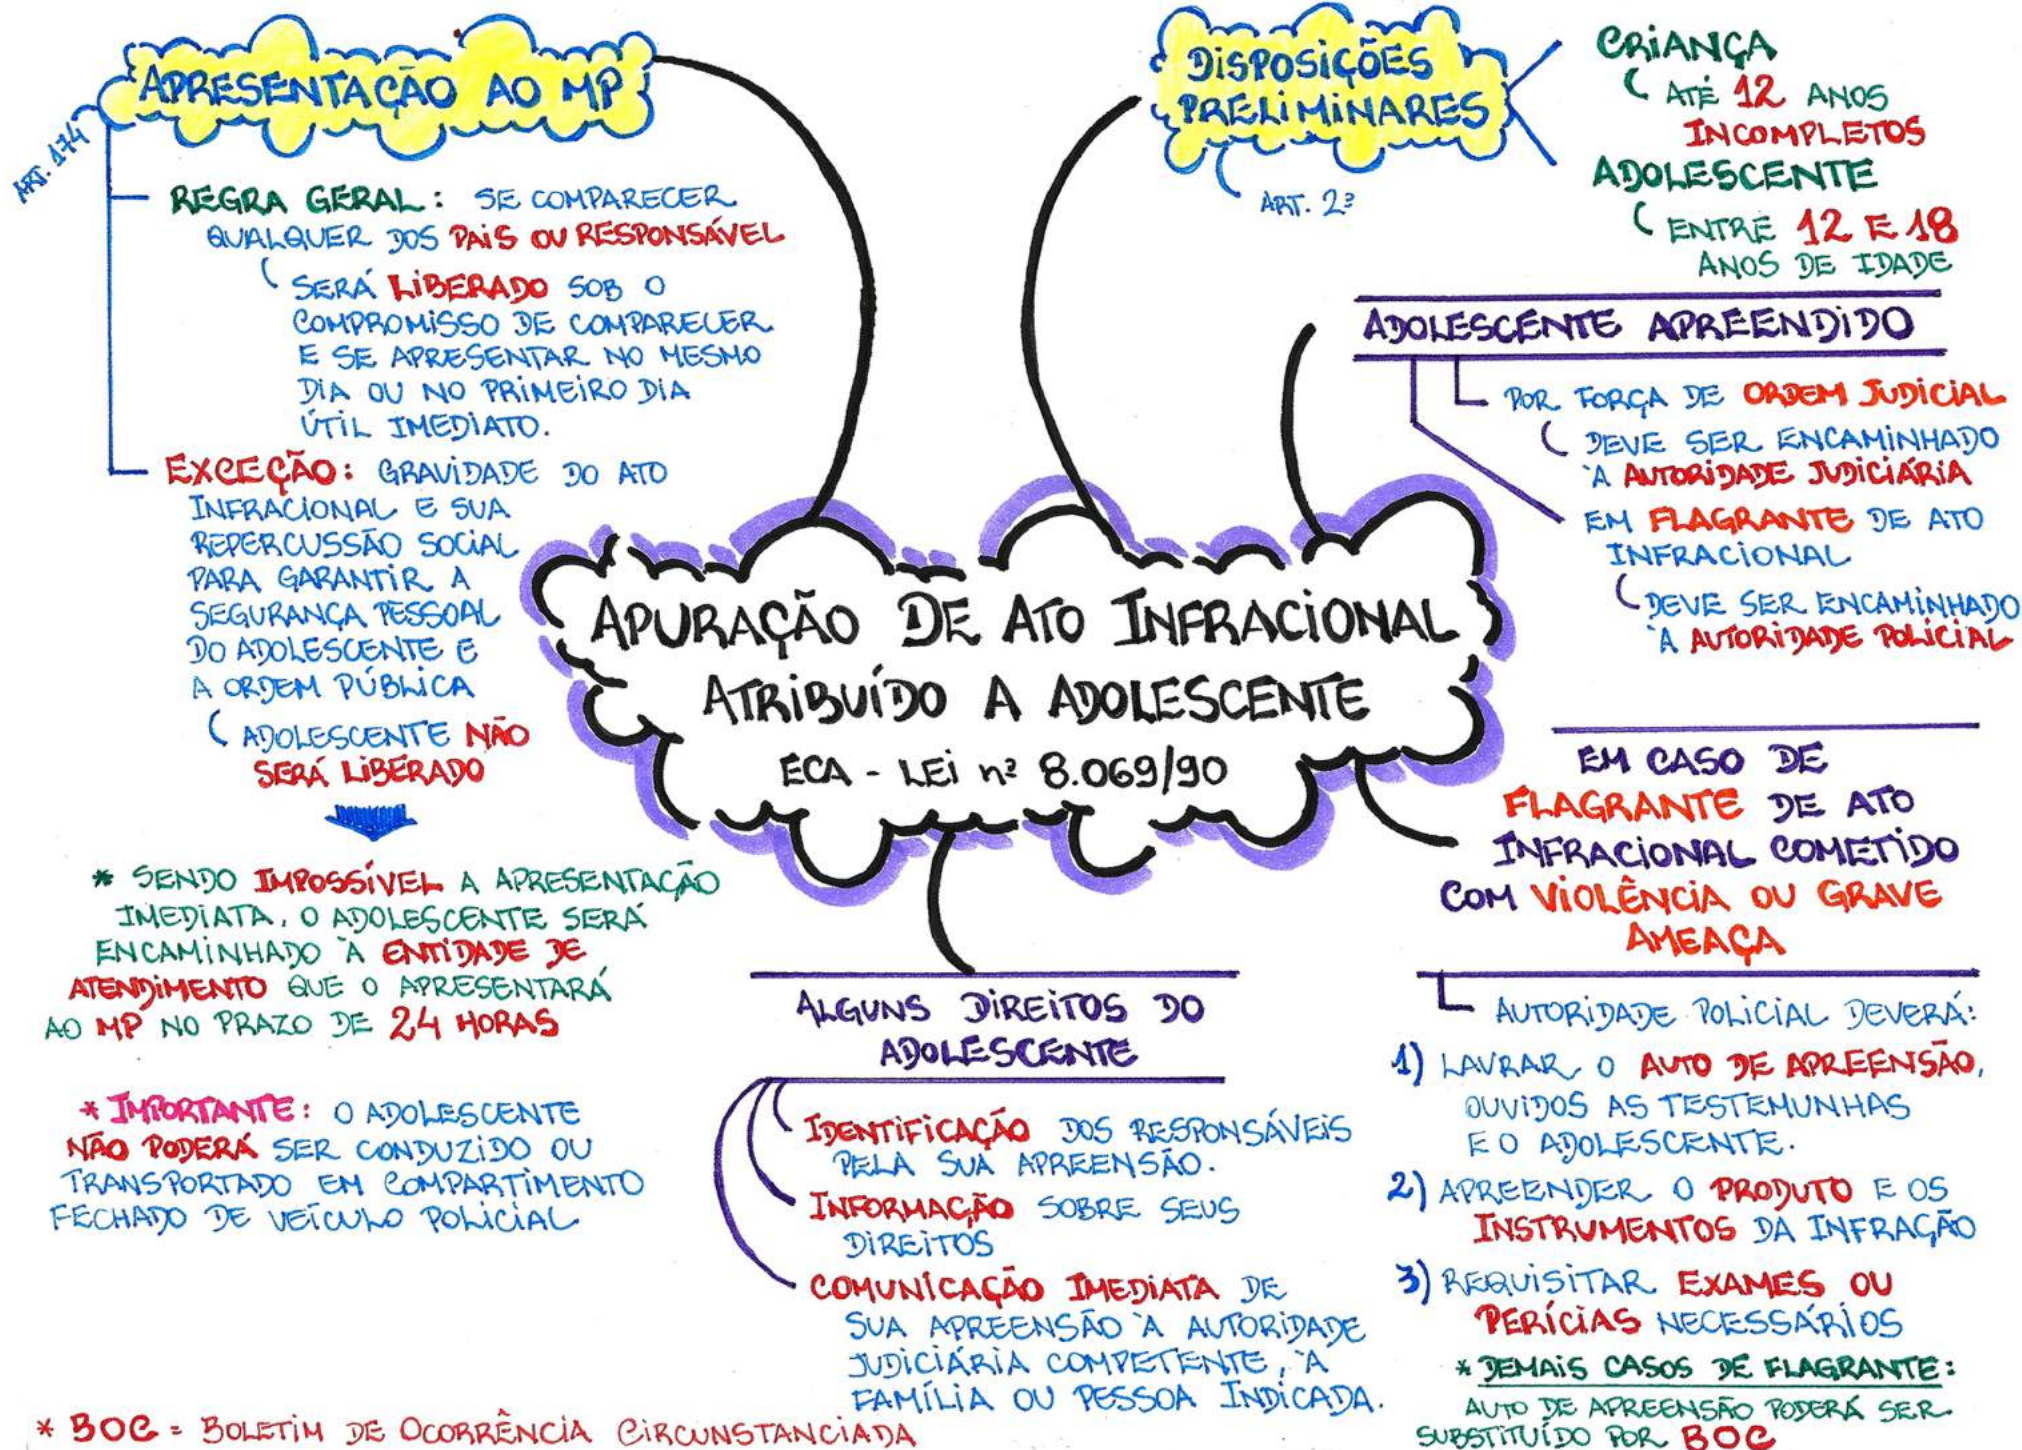 APRESENTAÇÃO AO MP
ART. 174
REGRA GERAL: SE COMPARECER
QUALQUER DOS PAIS OU RESPONSÁVEL
SERÁ LIBERADO SOB O
COMPROMISSO DE COMPARECER
E SE APRESENTAR NO MESMO
DIA OU NO PRIMEIRO DIA
ÚTIL IMEDIATO.
EXCEÇÃO: GRAVIDADE DO ATO
INFRACIONAL E SUA
REPERCUSSÃO SOCIAL
PARA GARANTIR A
SEGURANÇA PESSOAL
DO ADOLESCENTE E
A ORDEM PÚBLICA
ADOLESCENTE NÃO
SERÁ LIBERADO
* SENDO IMPOSSÍVEL A APRESENTAÇÃO
IMEDIATA, O ADOLESCENTE SERÁ
ENCAMINHADO À ENTIDADE DE
ATENDIMENTO QUE O APRESENTARÁ
AO MP NO PRAZO DE 24 HORAS
* IMPORTANTE: O ADOLESCENTE
NÃO PODERÁ SER CONDUZIDO OU
TRANSPORTADO EM COMPARTIMENTO
FECHADO DE VEÍCULO POLICIAL
* BOC = BOLETIM DE OCORRÊNCIA CIRCUNSTANCIADA
DISPOSIÇÕES
PRELIMINARES
ART. 2º
CRIANÇA
ATÉ 12 ANOS
INCOMPLETOS
ADOLESCENTE
ENTRE 12 E 18
ANOS DE IDADE
ADOLESCENTE APREENDIDO
POR FORÇA DE ORDEM JUDICIAL
DEVE SER ENCAMINHADO
À AUTORIDADE JUDICIÁRIA
EM FLAGRANTE DE ATO
INFRACIONAL
DEVE SER ENCAMINHADO
À AUTORIDADE POLICIAL
APURAÇÃO DE ATO INFRACIONAL
ATRIBUÍDO A ADOLESCENTE
ECA - LEI nº 8.069/90
EM CASO DE
FLAGRANTE DE ATO
INFRACIONAL COMETIDO
COM VIOLÊNCIA OU GRAVE
AMEAÇA
AUTORIDADE POLICIAL DEVERÁ:
1) LAVRAR O AUTO DE APREENSÃO,
OUVIDOS AS TESTEMUNHAS
E O ADOLESCENTE.
2) APREENDER O PRODUTO E OS
INSTRUMENTOS DA INFRAÇÃO
3) REQUISITAR EXAMES OU
PERÍCIAS NECESSÁRIOS
* DEMAIS CASOS DE FLAGRANTE:
AUTO DE APREENSÃO PODERÁ SER
SUBSTITUÍDO POR BOC
ALGUNS DIREITOS DO
ADOLESCENTE
IDENTIFICAÇÃO DOS RESPONSÁVEIS
PELA SUA APREENSÃO.
INFORMAÇÃO SOBRE SEUS
DIREITOS
COMUNICAÇÃO IMEDIATA DE
SUA APREENSÃO À AUTORIDADE
JUDICIÁRIA COMPETENTE, À
FAMÍLIA OU PESSOA INDICADA.